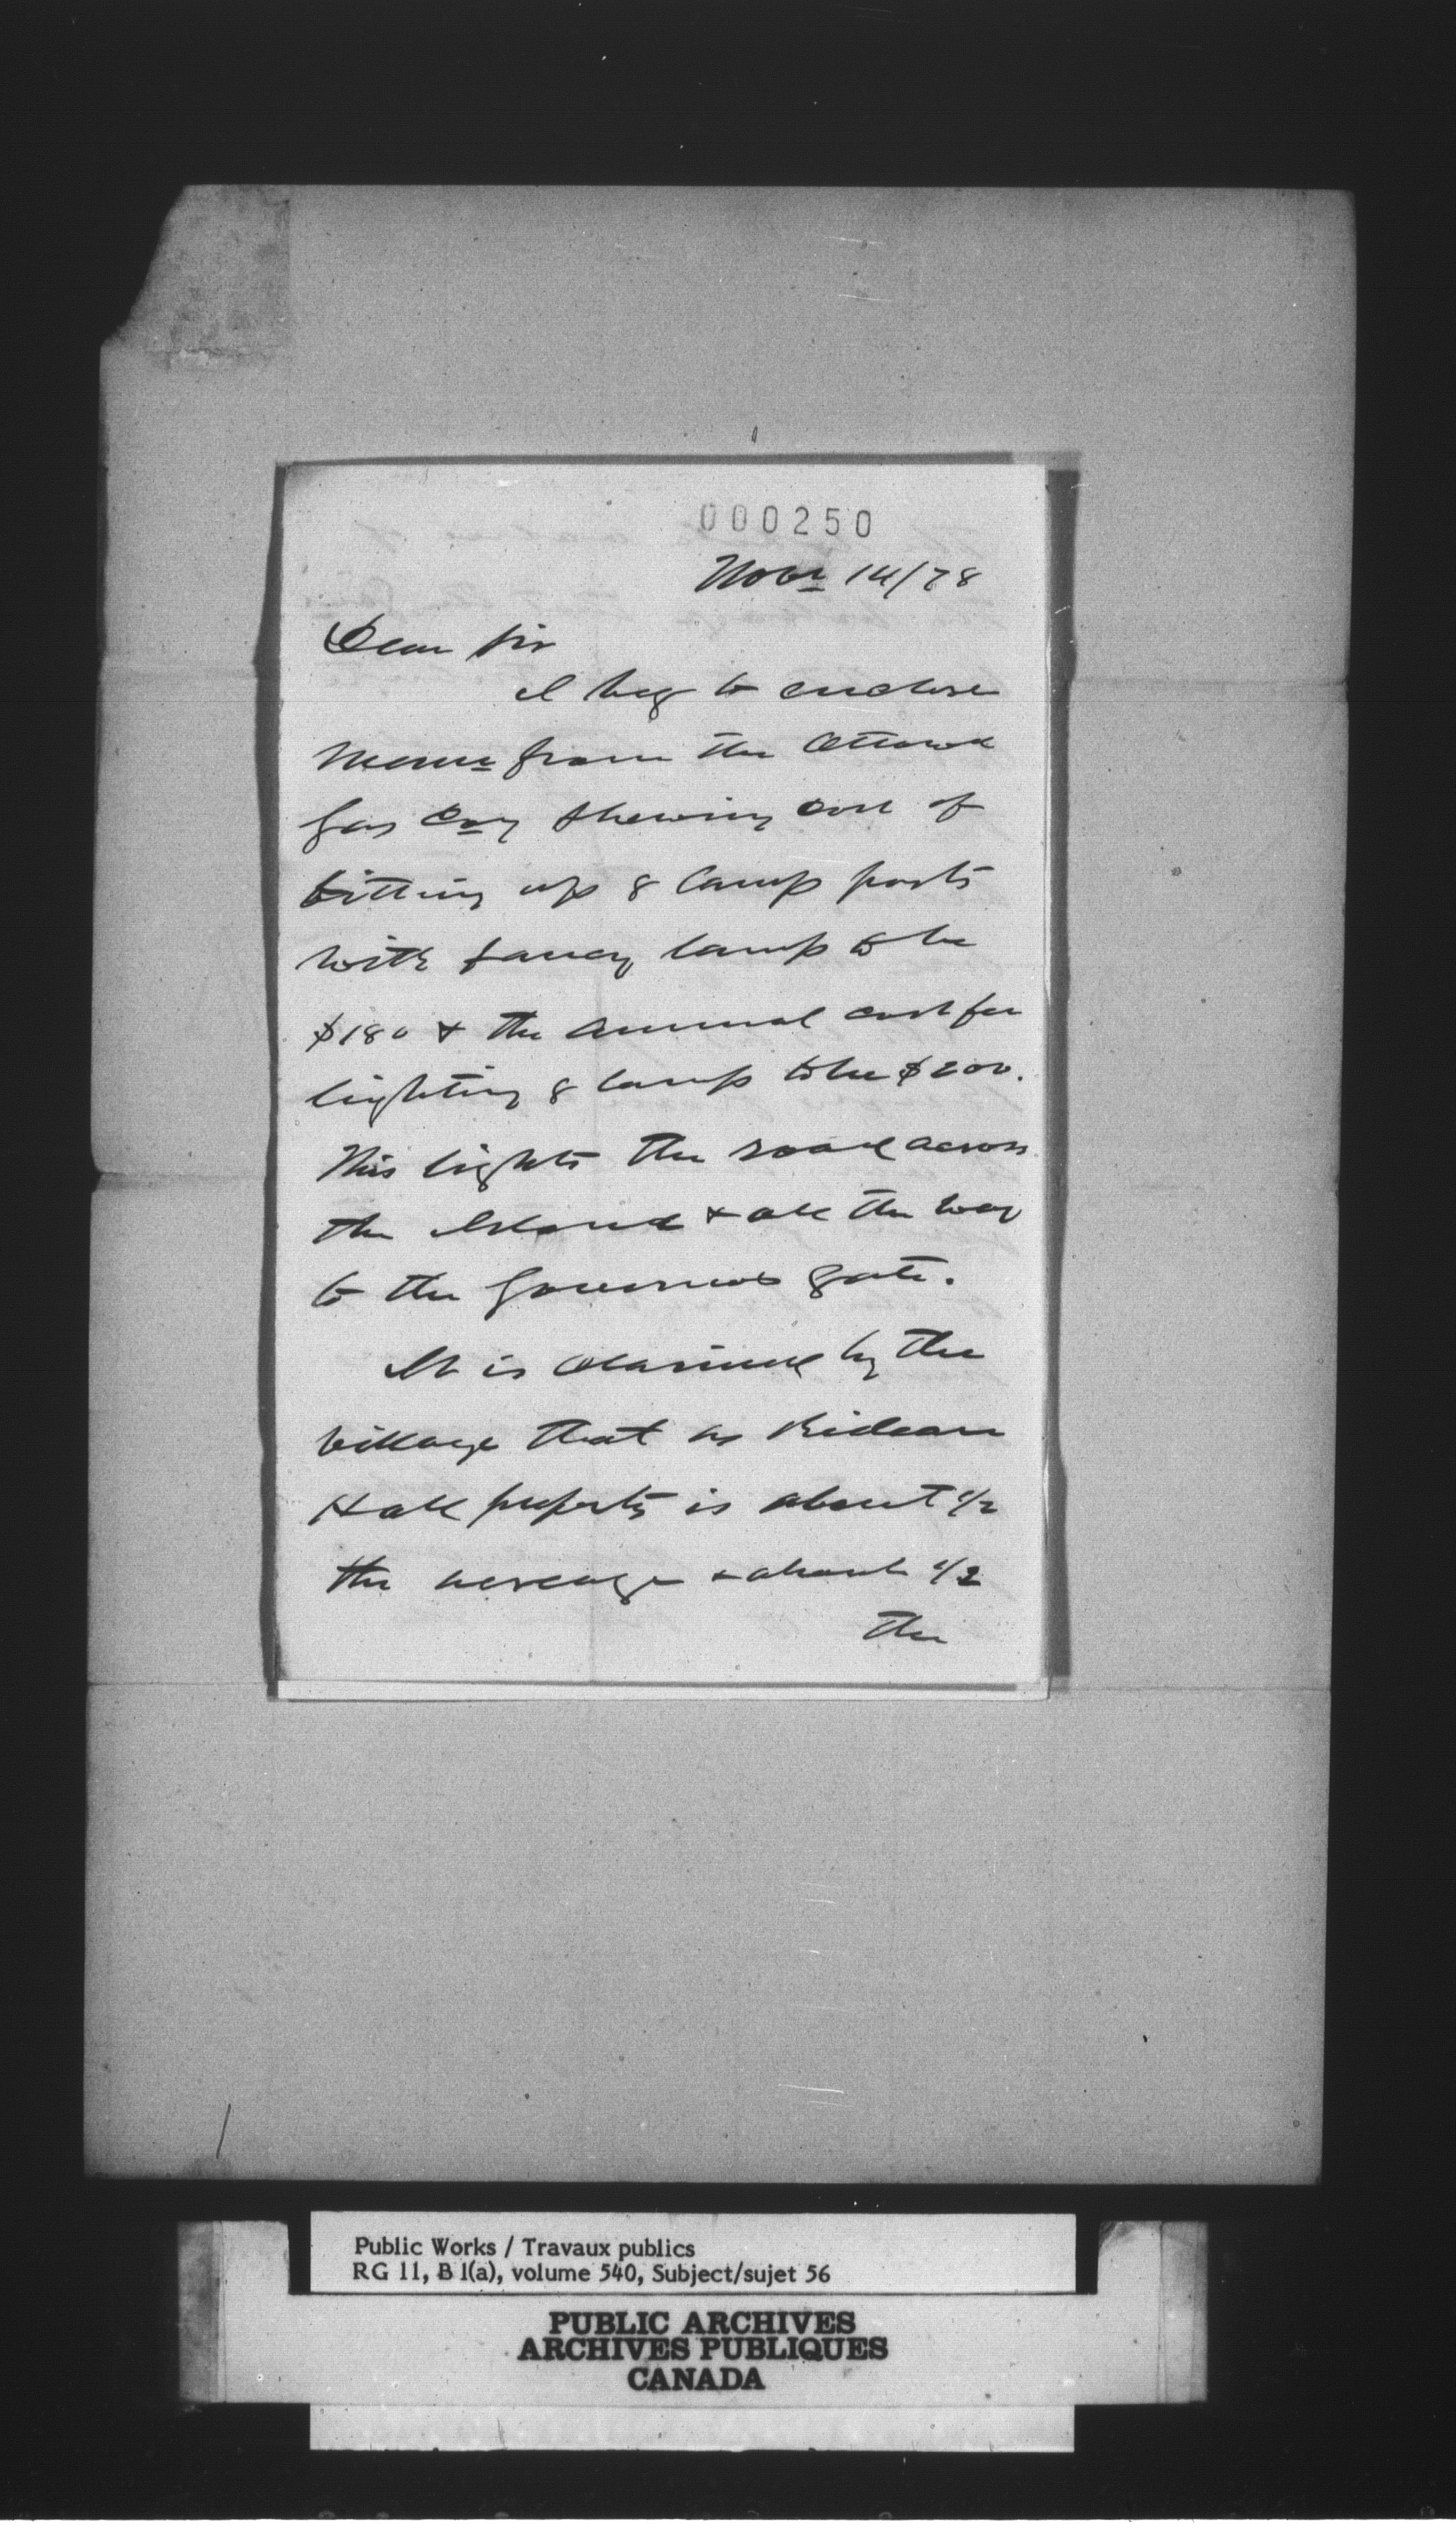 000250
Novr 14/78
Dear Sir
I beg to enclose
Memo from the Ottawa
Gas Coy shewing cost of
fitting up 8 lamp posts
with fancy lamps to be
$180 & the annual cost for
lighting 8 lamps to be $200.
This lights the road across
the Island & all the way
to the Governors gate.
It is claimed by the
village that as Rideau
Hall property is about 1/2
the acreage & about 1/2
the
Public Works / Travaux publics
RG 11, B 1(a), volume 540, Subject/sujet 56
PUBLIC ARCHIVES
ARCHIVES PUBLIQUES
CANADA